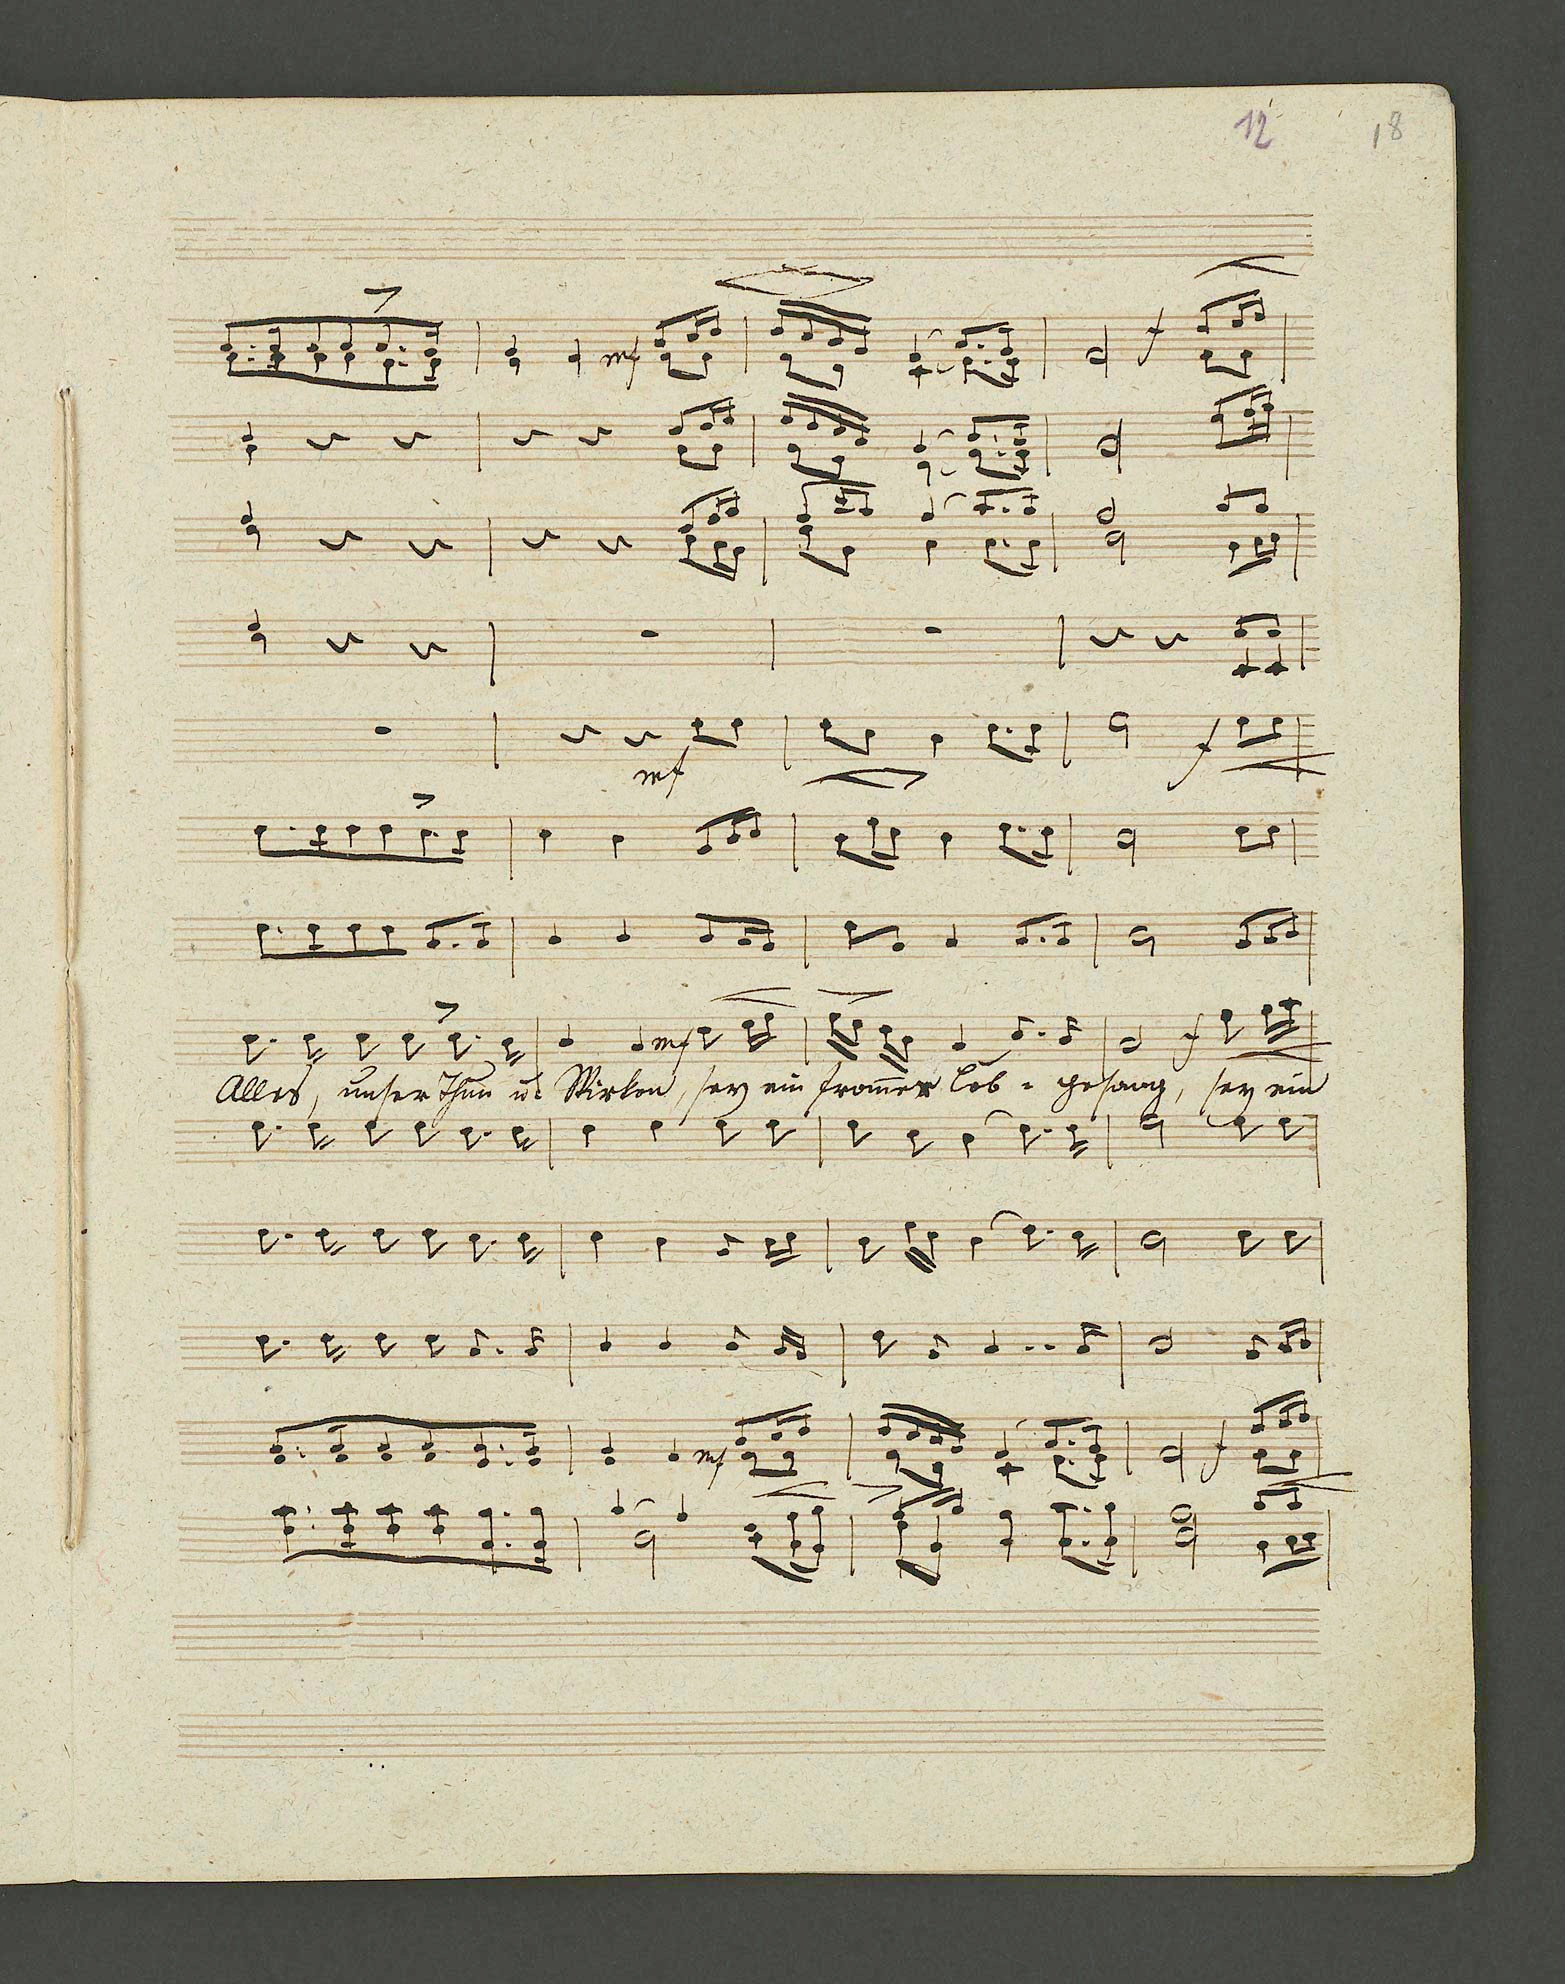 12 18
mf f
mf f
mf f
Alles, unser Thun u: Wirken, sey ein from̅er Lob = gesang, sey ein
mf f